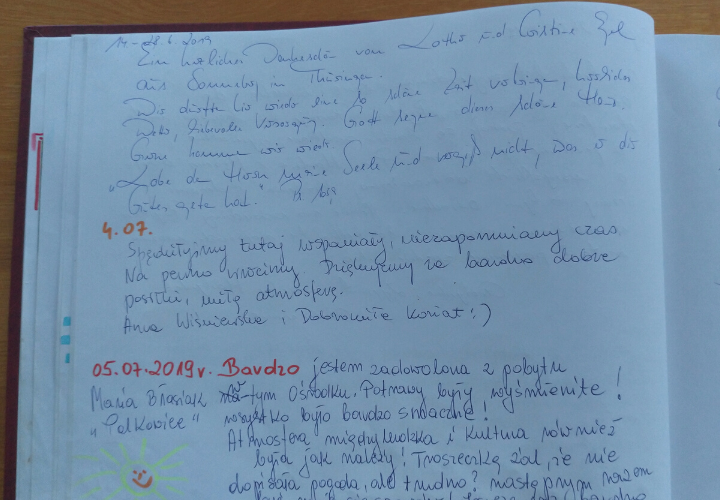 14.-28.6.2019
Ein herzliches Dankeschön von Lothar und Christine
aus Sonneberg in Thüringen.
Wir durften hier wieder eine so schöne Zeit verbringen, herzliche
liebevolle Versorgung. Gott segne dieses schöne Haus.
Gerne kommen wir wieder.
„Lobe den Herrn meine Seele und vergiß nicht, was er dir
Gutes getan hat." Ps 103
4.07.
Spędziłyśmy tutaj wspaniały, niezapomniany czas.
Na pewno wrócimy. Dziękujemy za bardzo dobre
posiłki, miłą atmosferę.
Anna Wiśniewska i Dobromiła Koniat :)
05.07.2019r. Bardzo jestem zadowolona z pobytu
Maria Błasiak w tym Ośrodku. Potrawy były wyśmienite!
„Polkowice" wszystko było bardzo smaczne!
Atmosfera międzyludzka i kultura również
była jak należy! Troszeczkę żal, że nie
dopisała pogoda, ale trudno? następnym razem